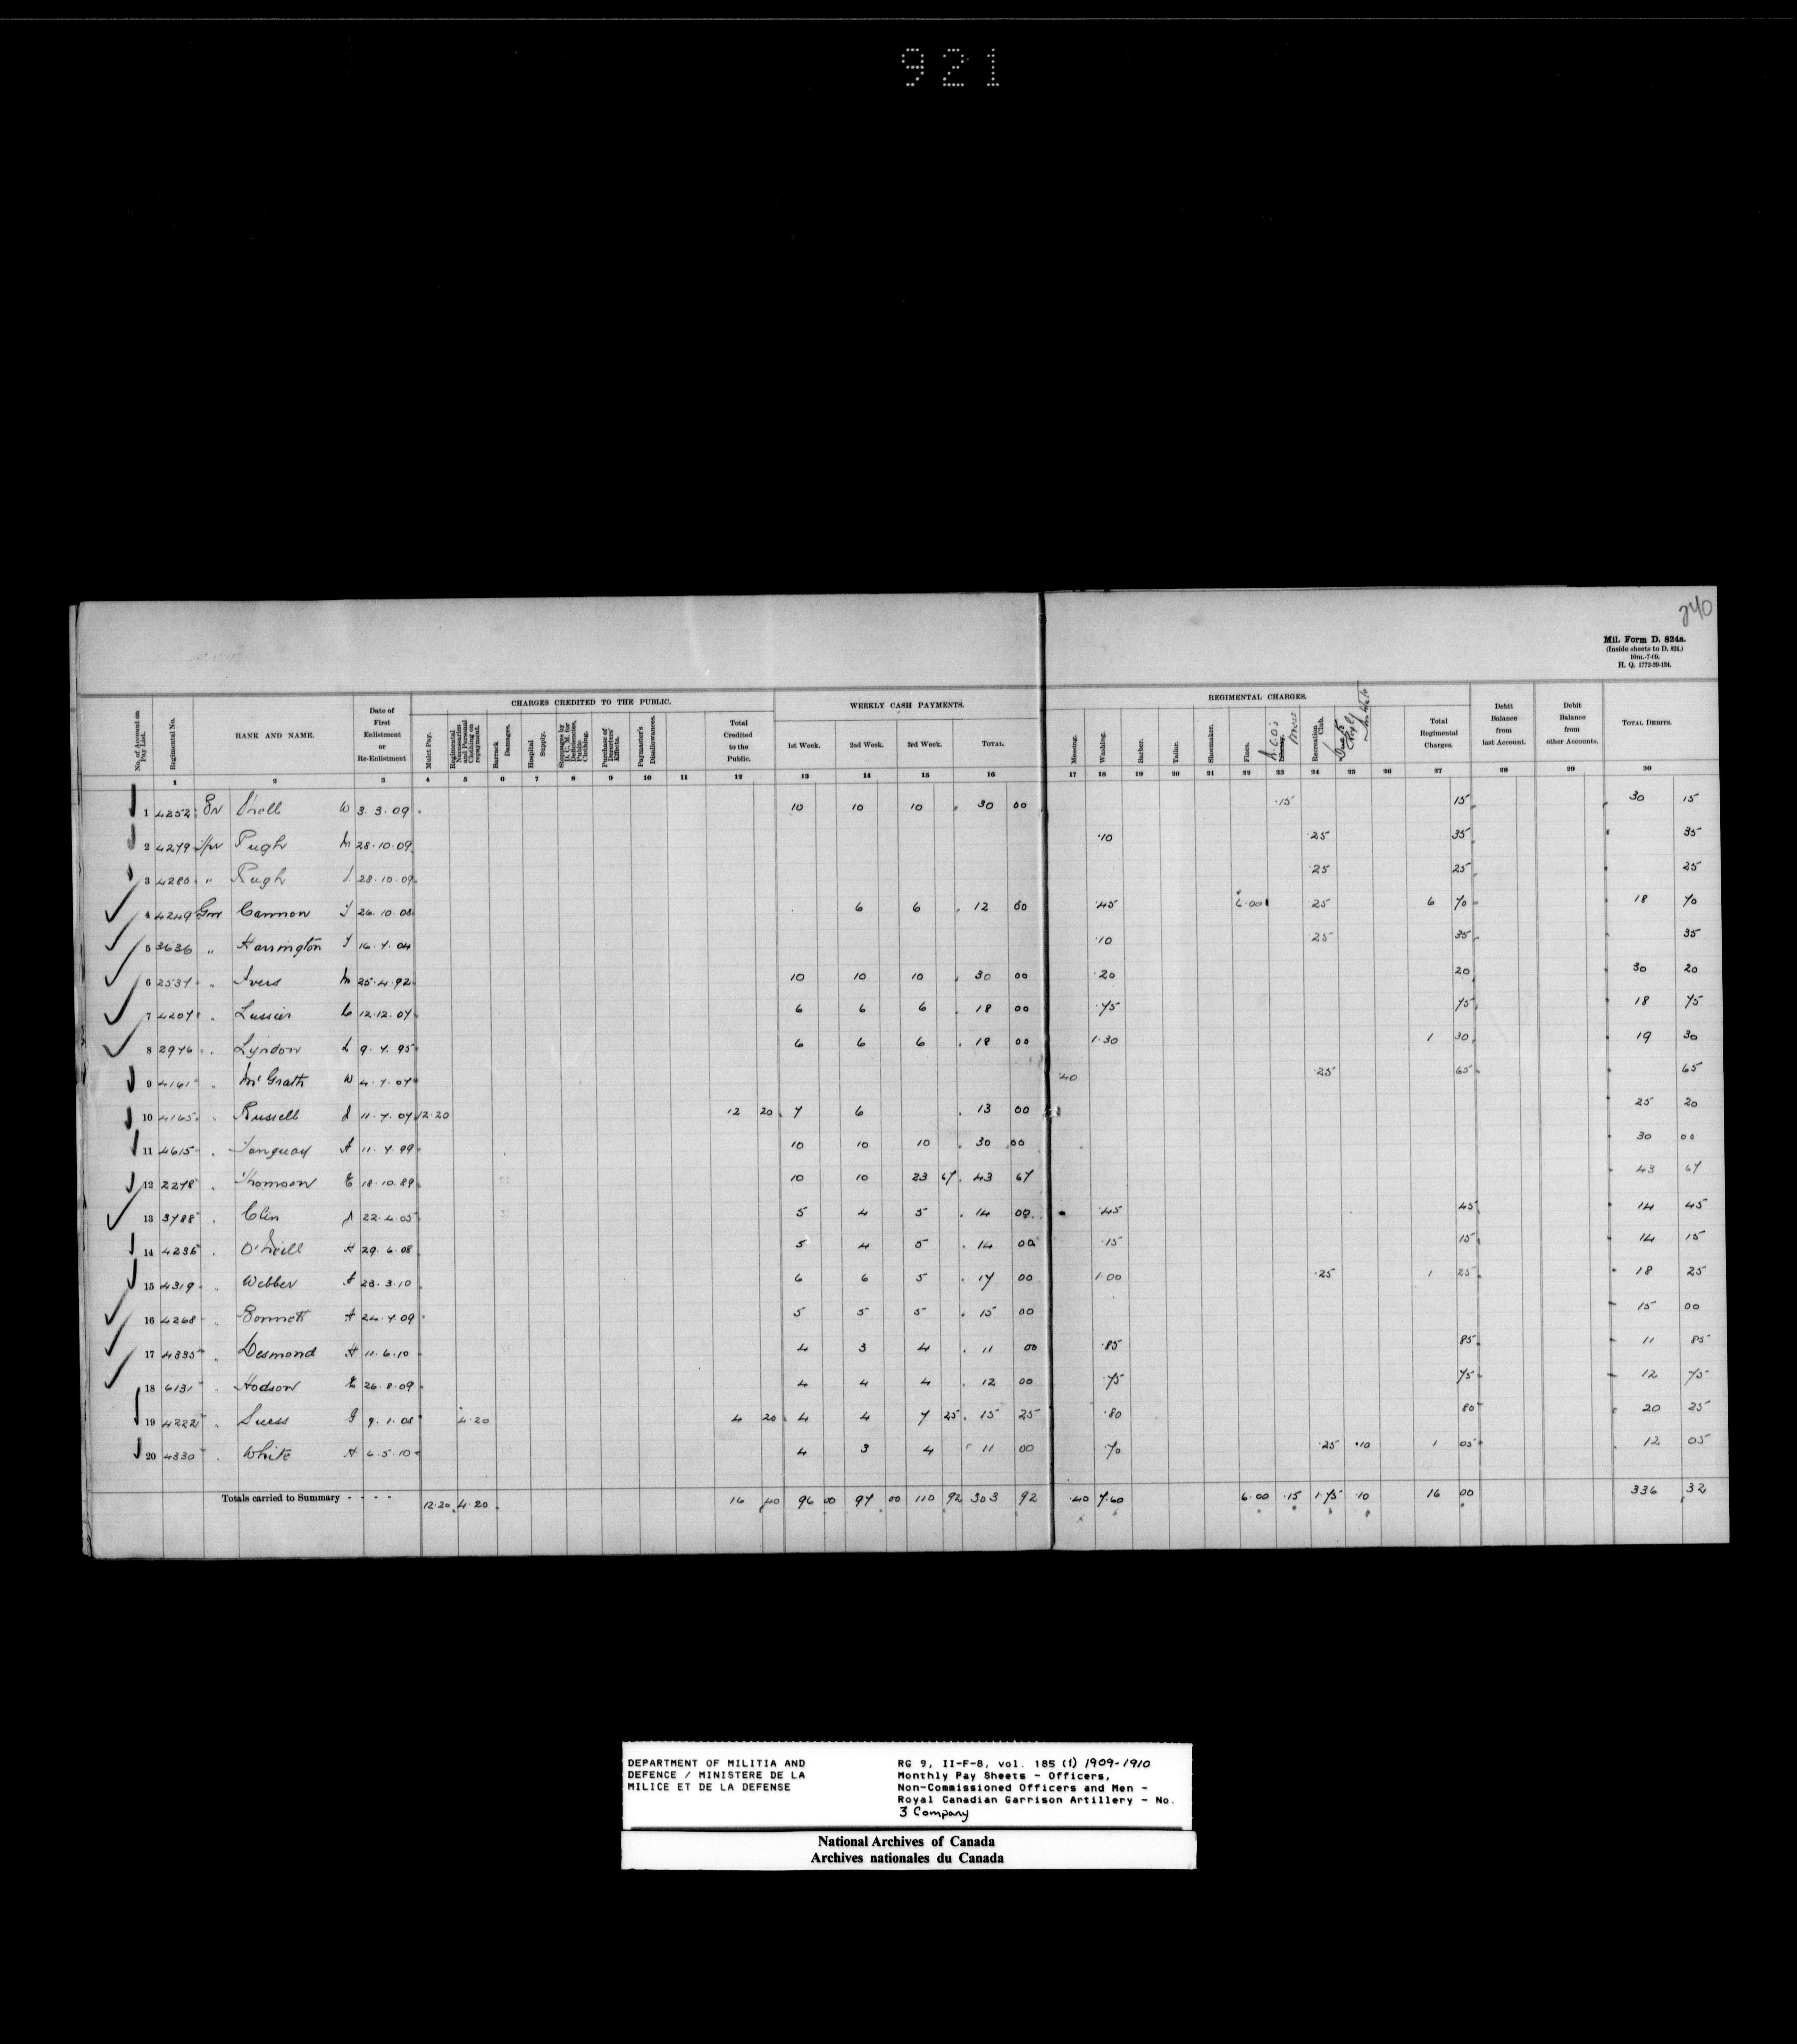 921
240
Mil. Form D. 824a.
(Inside sheets to D. 824.)
10m.-7-09.
H. Q. 1772-39-134.
CHARGES CREDITED TO THE PUBLIC. WEEKLY CASH PAYMENTS. REGIMENTAL CHARGES.
No. of Account on Pay List. Regimental No. RANK AND NAME. Date of First Enlistment or Re-Enlistment Mulct Pay. Regimental Necessaries and Personal Clothing on repayment. Barrack Damages. Hospital Supply. Stoppages by D. C. M. for Deficiencies, Public Clothing. Purchase of Deserters' Effects. Paymaster's Disallowances. Total Credited to the Public. 1st Week. 2nd Week. 3rd Week. TOTAL. Messing. Washing. Barber. Tailor. Shoemaker. Fines. N.C.O's Mess Recreation Club. Due to Regtl Institute Total Regimental Charges. Debit Balance from last Account. Debit Balance from other Accounts. TOTAL DEBITS.
1 2 3 4 5 6 7 8 9 10 11 12 13 14 15 16 17 18 19 20 21 22 23 24 25 26 27 28 29 30
1 4252 W 3.3.09 10 10 10 30 00 .15 15 30 15
2 4279 Pugh M 28.10.09 .10 .25 35 35
3 4280 " Pugh J 28.10.09 .25 25 25
4 4249 Gnr Cannon J 26.10.08 6 6 12 00 .45 6.00 .25 6 70 18 70
5 3636 " Harrington J 16.7.04 .10 .25 35 35
6 2537 " Ivers M 25.4.92 10 10 10 30 00 .20 20 30 20
7 4207 " Lussier 12.12.07 6 6 6 18 00 .75 75 18 75
8 2976 " Lyndon L 9.7.95 6 6 6 18 00 1.30 1 30 19 30
9 4161 " McGrath W 4.7.07 .40 .25 65 65
10 4165 " Russell 11.7.07 12.20 12 20 7 6 13 00 25 20
11 4615 " Tanguay A 11.7.99 10 10 10 30 00 30 00
12 2278 " Thomson E 18.10.89 10 10 23 67 43 67 43 67
13 3788 " Clin 22.4.05 5 4 5 14 00 .45 45 14 45
14 4236 " O'Neill H 29.6.08 5 4 5 14 00 .15 15 14 15
15 4319 " Webber A 23.3.10 6 6 5 17 00 1.00 .25 1 25 18 25
16 4268 " Bonnett A 24.7.09 5 5 5 15 00 15 00
17 4335 " Desmond H 11.6.10 4 3 4 11 00 .85 85 11 85
18 6131 " Hodson E 26.8.09 4 4 4 12 00 .75 75 12 75
19 4222 " Suess G 9.1.08 4.20 4 20 4 4 7 25 15 25 .80 80 20 25
20 4330 " White H 6.5.10 4 3 4 11 00 .70 .25 .10 1 05 12 05
Totals carried to Summary - - - - 12.20 4.20 16 40 96 00 97 00 110 92 303 92 .40 7.60 6.00 .15 1.75 .10 16 00 336 32
DEPARTMENT OF MILITIA AND
DEFENCE / MINISTERE DE LA
MILICE ET DE LA DEFENSE
RG 9, II-F-8, vol. 185 (1) 1909-1910
Monthly Pay Sheets - Officers,
Non-Commissioned Officers and Men -
Royal Canadian Garrison Artillery - No.
3 Company
National Archives of Canada
Archives nationales du Canada